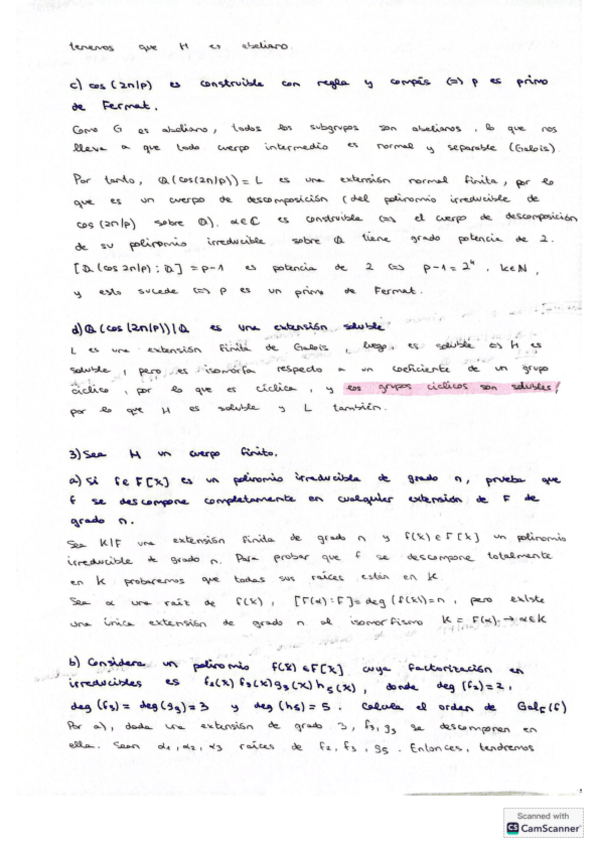 tenemos que H es abeliano.
c) cos(2π/p) es construible con regla y compás (=) p es primo
de Fermat.
Como G es abeliano, todos los subgrupos son abelianos, lo que nos
lleva a que todo cuerpo intermedio es normal y separable (Galois).
Por tanto, Q(cos(2π/p)) = L es una extensión normal finita, por lo
que es un cuerpo de descomposición (del polinomio irreducible de
cos(2π/p) sobre Q). α∈C es construible (=) el cuerpo de descomposición
de su polinomio irreducible sobre Q tiene grado potencia de 2.
[Q(cos 2π/p):Q] = p-1 es potencia de 2 (=) p-1 = 2^k, k∈N,
y esto sucede (=) p es un primo de Fermat.
d) Q(cos(2π/p))|Q es una extensión soluble
L es una extensión finita de Galois, luego, es soluble (=) H es
soluble, pero es isomorfa respecto a un coeficiente de un grupo
cíclico, por lo que es cíclica, y los grupos cíclicos son solubles,
por lo que H es soluble y L también.
3) Sea H un cuerpo finito.
a) Si f∈F[x] es un polinomio irreducible de grado n, prueba que
f se descompone completamente en cualquier extensión de F de
grado n.
Sea K|F una extensión finita de grado n y f(x)∈F[x] un polinomio
irreducible de grado n. Para probar que f se descompone totalmente
en K probaremos que todas sus raíces están en K.
Sea α una raíz de f(x), [F(α):F] = deg(f(x)) = n, pero existe
una única extensión de grado n al isomorfismo K = F(α) → α∈K
b) Considera un polinomio f(x)∈F[x] cuya factorización en
irreducibles es f₂(x)f₃(x)g₃(x)h₅(x), donde deg(f₂)=2,
deg(f₃) = deg(g₃) = 3 y deg(h₅) = 5. Calcula el orden de Gal_F(f)
Por a), dada una extensión de grado 3, f₃, g₃ se descomponen en
ella. Sean α₁, α₂, α₃ raíces de f₂, f₃, g₅. Entonces, tendremos
Scanned with
CS CamScanner